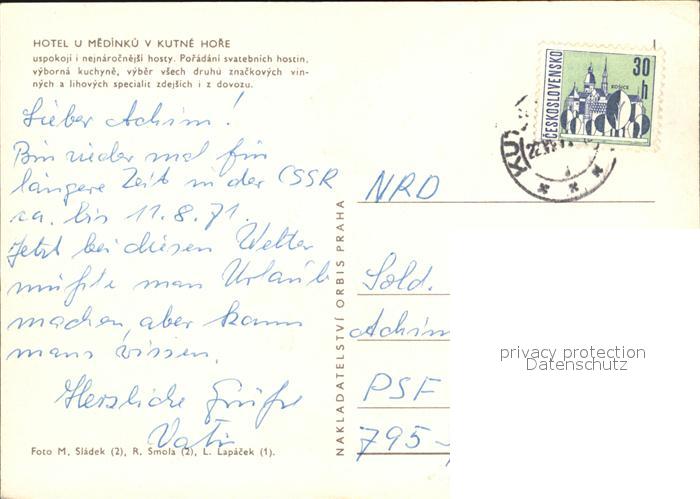 HOTEL U MĚDÍNKŮ V KUTNÉ HOŘE
uspokojí i nejnáročnější hosty. Pořádání svatebních hostin,
výborná kuchyně, výběr všech druhů značkových vin-
ných a lihových specialit zdejších i z dovozu.
Lieber Achim!
Bin wieder mal für
längere Zeit in der CSSR
ca. bis 11.8.71.
Jetzt bei diesen Wetter
müßte man Urlaub
machen, aber kann
mans wissen.
Herzliche Grüße
Vati
Foto M. Sládek (2), R. Smola (2), L. Lapáček (1).
NAKLADATELSTVÍ ORBIS PRAHA
ČESKOSLOVENSKO
30 h
KOŠICE
KU
NRD
Sold.
Achim
PSF
795-
privacy protection
Datenschutz